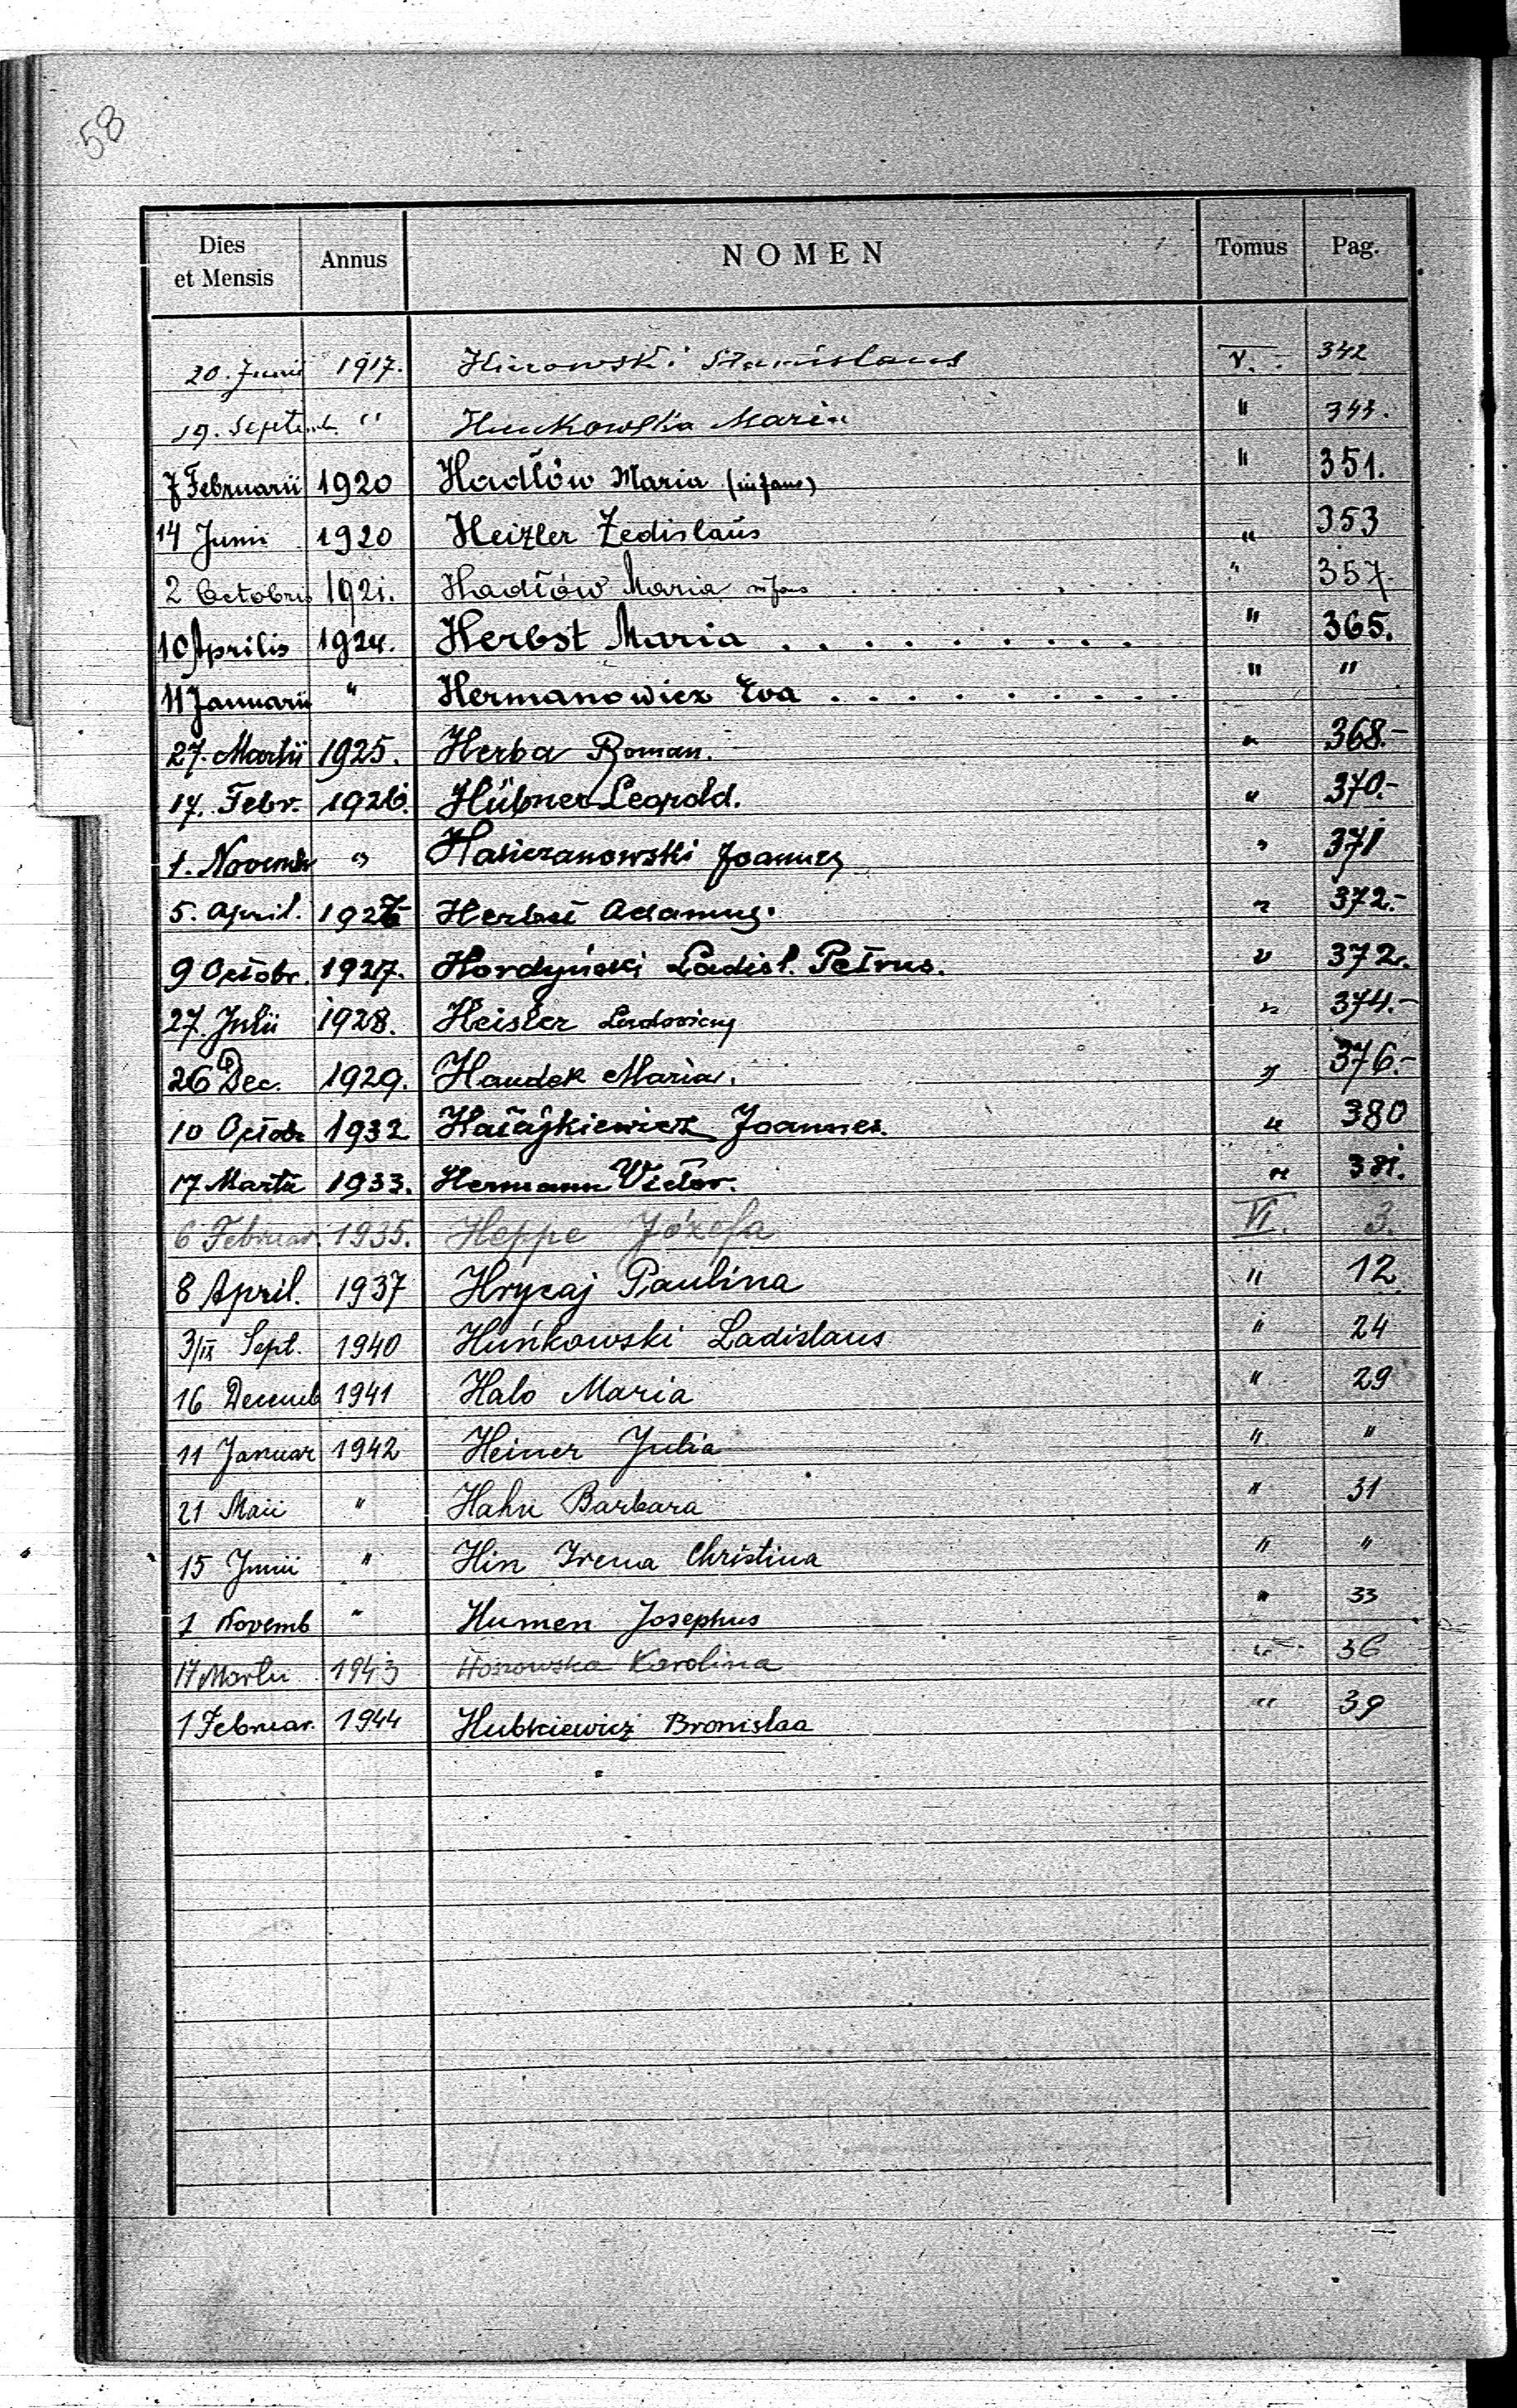 58
Dies et Mensis Annus NOMEN Tomus Pag.
20. Junii 1917. Hirowski Stanislaus V. 342
19. Septemb. " Hunkowska Maria " 343.
7 Februarii 1920 Hadłów Maria (infans) " 351.
14 Junii 1920 Heizler Zedislaus " 353
2 Octobris 1921. Hadłów Maria infans " 357.
10 Aprilis 1924. Herbst Maria . . . . . . . . . " 365.
11 Januarii " Hermanowicz Eva . . . . . . . . . " "
27. Martii 1925. Herba Roman. " 368.-
17. Febr. 1926. Hübner Leopold. " 370.-
1. Novembr " Joannes " 371
5. April. 1927 Herbst Adamus. " 372.-
9 Octobr. 1927. Hordyński Ladisl. Petrus. " 372.
27. Julii 1928. Heisler Ludovicus " 374.-
26 Dec. 1929. Haudek Maria. " 376.-
10 Octobr 1932 Joannes. " 380
17 Martii 1933. Hermann Victor. " 381.
6 Februar. 1935. Heppe Józefa VI. 3.
8 April. 1937 Hrycaj Paulina " 12
3/IX Sept. 1940 Huńkowski Ladislaus " 24
16 Decemb 1941 Halo Maria " 29
11 Januar 1942 Heiner Julia " "
21 Maii " Hahn Barbara " 31
15 Junii " Hin Irena Christina " "
1 Novemb " Humen Josephus " 33
17 Martii 1943 Karolina " 36
1 Februar. 1944 Hubkiewicz Bronislaa " 39